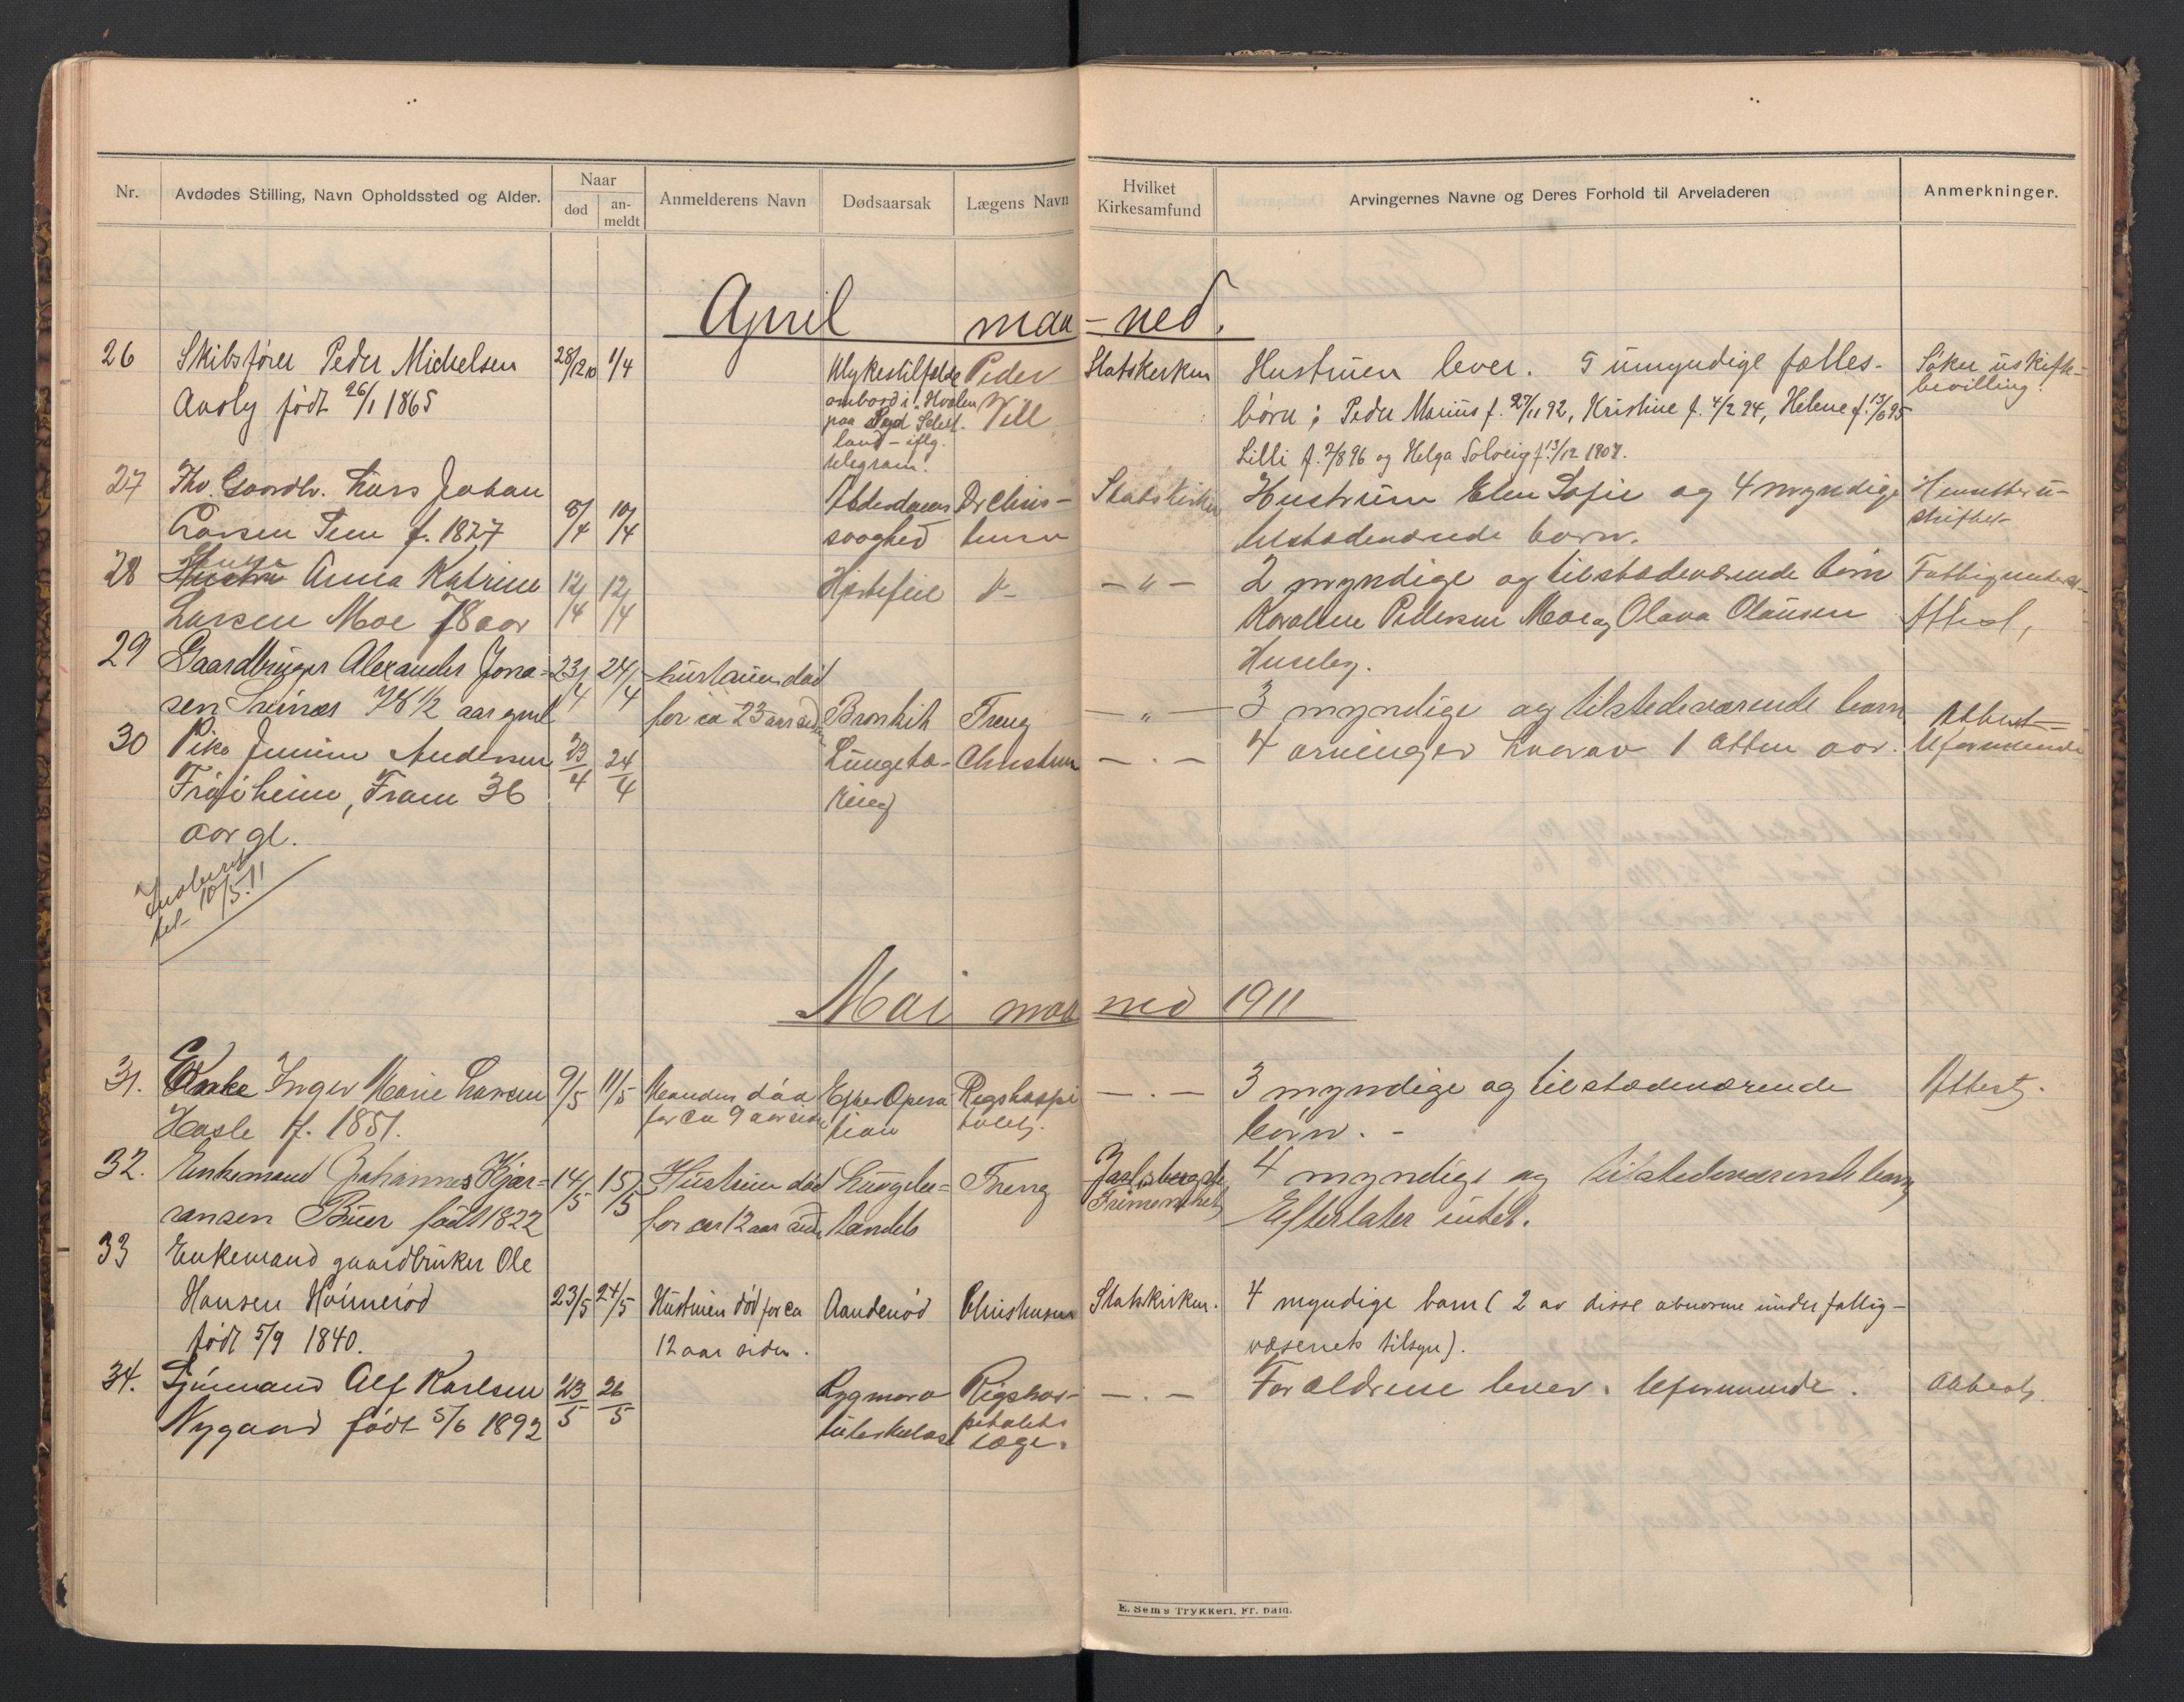 Nr. Avdødes Stilling, Navn Opholdssted og Alder. Naar død an-meldt Anmelderens Navn Dødsaarsak Lægens Navn Hvilket Kirkesamfund Arvingernes Navne og Deres Forhold til Arveladeren Anmerkninger.
April maa-ned.
26 Skibsfører Peder Michelsen 28/12 10 1/4 Ulykestilfælde Peder Statskirken Hustruen lever. 5 umyndige fælles-
født 26/1 1865 ombord i "Hvalen Vell børn; Peder Marius f. 27/11 92, Kristine f. 4/2 94, Helene f. 13/6 95 bevilling.
paa Syd
land - iflg. Lilli f. 7/8 96 og Helga Solveig f. 13/12 1907.
telegram.
27 Gaardbr. Lars Johan Alderdoms Dr Chris- Statskirken Hustruen Elen Sofie og 4 myndige Hensitter u-
Larsen Tem f. 1827 8/4 10/4 svaghed tensen tilstedeværende børn. skiftet
28 Enke Hustru Anna Katrine 12/4 12/4 Hjertefeil - " - 2 myndige og tilstedeværende børn
Larsen Moe 78 aar Karoline Pedersen Moe og Olava Olausen Attest,
Huseby.
29 Gaardbruger Alexander Jona- 23/4 24/4 hustruen død
sen 78 1/2 aar gml for ca 23 aar siden Bronkit Freng - " - 3 myndige og tilstedeværende børn Attest
30 Pike Andersen 23/4 24/4 Lungetæ- Christensen - . - 4 arvinger hvorav 1 otten aar. Uformuende
Frøiheim, Fram 36 ring
aar gl.
10/5.11
Mai maa ned 1911
31. Enke Inger Marie Larsen 9/5 11/5 Manden død Efter Opera Rigshospi - . - 3 myndige og tilstedeværende Attest.
Hasle f. 1851. for ca 9 aar siden tion talet. børn. -
32. Enkemand Johannes Kjær- 14/5 15/5 Hustruen død Lungebe- Freng Jarlsberg 4 myndige og tilstedeværende børn
ransen Buer født 1822 for ca 12 aar siden tændels Frimenighet Efterlater intet.
33 Enkemand gaardbruker Ole
Hansen Hoimerød 23/5 24/5 Hustruen død for ca Aandenød Christensen Statskirken. 4 myndige barn (2 av disse abnorme under fattig-
født 5/9 1840. 12 aar siden. væsenets tilsyn).
34. Sjømand Alf Karlsen 23/5 26/5 Rygmarv Rigshos- - . - Forældrene lever. Uformuende. Attest.
Nygaard født 5/6 1892 tuberkulose pitalets
læge.
E. Sem's Trykkeri, Fr. hald.